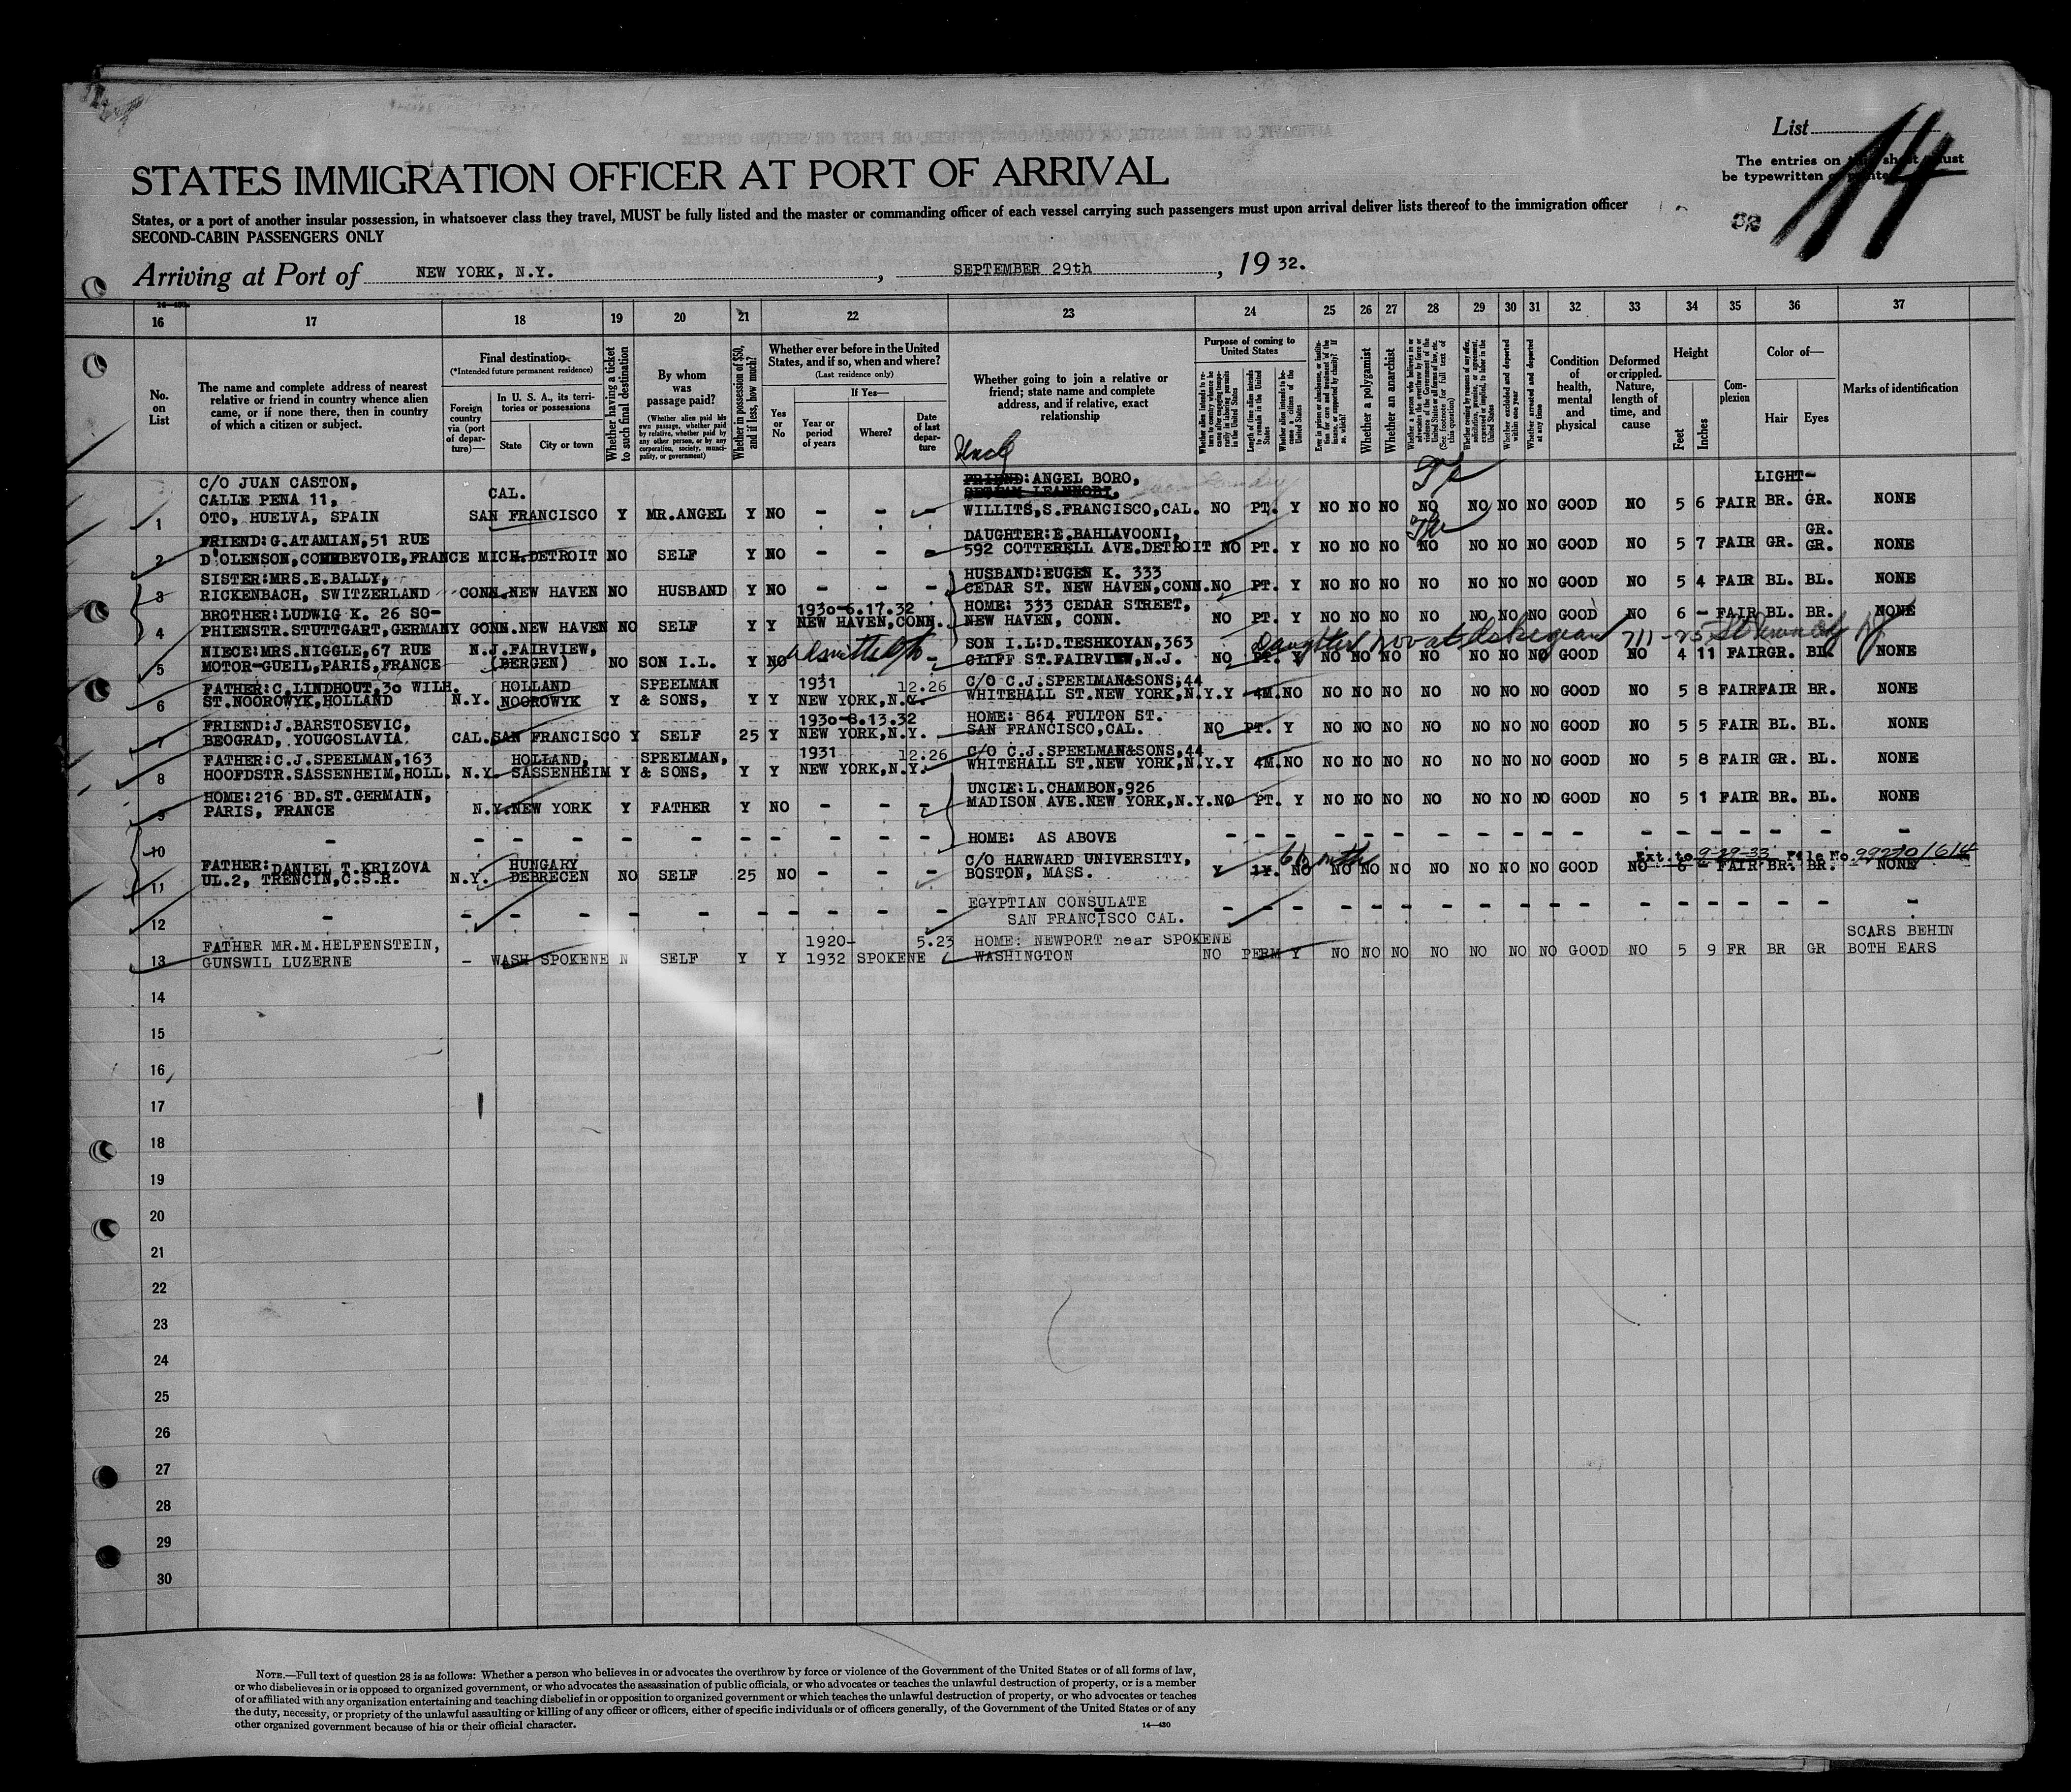 List
14
The entries on this sheet must
be typewritten or printed
STATES IMMIGRATION OFFICER AT PORT OF ARRIVAL
States, or a port of another insular possession, in whatsoever class they travel, MUST be fully listed and the master or commanding officer of each vessel carrying such passengers must upon arrival deliver lists thereof to the immigration officer
SECOND-CABIN PASSENGERS ONLY
Arriving at Port of NEW YORK, N.Y., SEPTEMBER 29th, 19 32.
16 17 18 19 20 21 22 23 24 25 26 27 28 29 30 31 32 33 34 35 36 37
No. on List
The name and complete address of nearest relative or friend in country whence alien came, or if none there, then in country of which a citizen or subject.
Final destination
(*Intended future permanent residence)
Foreign country via (port of departure)—
In U. S. A., its territories or possessions
State
City or town
Whether having a ticket to such final destination
By whom was passage paid?
(Whether alien paid his own passage, whether paid by relative, whether paid by any other person, or by any corporation, society, municipality, or government)
Whether in possession of $50, and if less, how much?
Whether ever before in the United States, and if so, when and where?
(Last residence only)
Yes or No
If Yes—
Year or period of years
Where?
Date of last departure
Whether going to join a relative or friend; state name and complete address, and if relative, exact relationship
Purpose of coming to United States
Length of time alien intends to remain in the United States
Whether alien intends to become a citizen of the United States
Whether a polygamist
Whether an anarchist
Whether excluded and deported within one year
Whether arrested and deported at any time
Condition of health, mental and physical
Deformed or crippled. Nature, length of time, and cause
Height
Feet
Inches
Complexion
Color of—
Hair
Eyes
Marks of identification
Uncle
C/O JUAN CASTON, FRIEND:ANGEL BORO, LIGHT-
CALLE PENA 11, CAL.
1 OTO, HUELVA, SPAIN SAN FRANCISCO Y MR.ANGEL Y NO - - - WILLITS,S.FRANCISCO,CAL. NO PT. Y NO NO NO NO NO NO NO GOOD NO 5 6 FAIR BR. GR. NONE
FRIEND:G.ATAMIAN,51 RUE DAUGHTER:E.BAHLAVOONI, GR.
2 D'OLENSON,COMMBEVOIE,FRANCE MICH.DETROIT NO SELF Y NO - - - 592 COTTERELL AVE.DETROIT NO PT. Y NO NO NO NO NO NO NO GOOD NO 5 7 FAIR GR. GR. NONE
SISTER:MRS.E.BALLY, HUSBAND:EUGEN K. 333
3 RICKENBACH, SWITZERLAND CONN.NEW HAVEN NO HUSBAND Y NO - - - CEDAR ST. NEW HAVEN,CONN.NO PT. Y NO NO NO NO NO NO NO GOOD NO 5 4 FAIR BL. BL. NONE
BROTHER:LUDWIG K. 26 SO- 1930-6.17.32 HOME: 333 CEDAR STREET,
4 PHIENSTR.STUTTGART,GERMANY CONN.NEW HAVEN NO SELF Y Y NEW HAVEN,CONN. NEW HAVEN, CONN. NO PT. Y NO NO NO NO NO NO NO GOOD NO 6 - FAIR BL. BR. NONE
NIECE:MRS.NIGGLE,67 RUE N.J.FAIRVIEW, SON I.L:D.TESHKOYAN,363 Daughter 711-25
5 MOTOR-GUEIL,PARIS,FRANCE (BERGEN) NO SON I.L. Y NO - CLIFF ST.FAIRVIEW,N.J. NO PT. Y NO NO NO NO NO NO NO GOOD NO 4 11 FAIR GR. BL. NONE
FATHER:C.LINDHOUT,30 WILH. HOLLAND SPEELMAN 1931 12.26 C/O C.J.SPEELMAN&SONS,44
6 ST.NOOROWYK,HOLLAND N.Y. NOOROWYK Y & SONS, Y Y NEW YORK,N.Y. WHITEHALL ST.NEW YORK,N.Y.Y 4M.NO NO NO NO NO NO NO NO GOOD NO 5 8 FAIR FAIR BR. NONE
FRIEND:J.BARSTOSEVIC, 1930-8.13.32 HOME: 864 FULTON ST.
7 BEOGRAD, YOUGOSLAVIA. CAL.SAN FRANCISCO Y SELF 25 Y NEW YORK,N.Y. SAN FRANCISCO,CAL. NO PT. Y NO NO NO NO NO NO NO GOOD NO 5 5 FAIR BL. BL. NONE
FATHER:C.J.SPEELMAN,163 HOLLAND, SPEELMAN, 1931 12.26 C/O C.J.SPEELMAN&SONS,44
8 HOOFDSTR.SASSENHEIM,HOLL. N.Y. SASSENHEIM Y & SONS, Y Y NEW YORK,N.Y. WHITEHALL ST.NEW YORK,N.Y.Y 4M.NO NO NO NO NO NO NO NO GOOD NO 5 8 FAIR GR. BL. NONE
HOME:216 BD.ST.GERMAIN, UNCLE:L.CHAMBON,926
9 PARIS, FRANCE N.Y.NEW YORK Y FATHER Y NO - - - MADISON AVE.NEW YORK,N.Y.NO PT. Y NO NO NO NO NO NO NO GOOD NO 5 1 FAIR BR. BL. NONE
10 - - - - - - - - - - HOME: AS ABOVE - - - - - - - - - - - - - - - - -
FATHER:DANIEL T.KRIZOVA HUNGARY C/O HARWARD UNIVERSITY, 6 month Ext. to 9-29-33 File No 99270/614
11 UL.2, TRENCIN,C.S.R. N.Y. DEBRECEN NO SELF 25 NO - - - BOSTON, MASS. Y 1Y. NO NO NO NO NO NO NO NO GOOD NO 6 - FAIR BR. BR. NONE
EGYPTIAN CONSULATE
12 - - - - - - - - - - SAN FRANCISCO CAL. - - - - - - - - - - - - - - - - -
SCARS BEHIN
FATHER MR.M.HELFENSTEIN, 1920- 5.23 HOME: NEWPORT near SPOKENE BOTH EARS
13 GUNSWIL LUZERNE - WASH SPOKENE N SELF Y Y 1932 SPOKENE WASHINGTON NO PERM Y NO NO NO NO NO NO NO GOOD NO 5 9 FR BR GR
14
15
16
17
18
19
20
21
22
23
24
25
26
27
28
29
30
NOTE.—Full text of question 28 is as follows: Whether a person who believes in or advocates the overthrow by force or violence of the Government of the United States or of all forms of law,
or who disbelieves in or is opposed to organized government, or who advocates the assassination of public officials, or who advocates or teaches the unlawful destruction of property, or is a member
of or affiliated with any organization entertaining and teaching disbelief in or opposition to organized government or which teaches the unlawful destruction of property, or who advocates or teaches
the duty, necessity, or propriety of the unlawful assaulting or killing of any officer or officers, either of specific individuals or of officers generally, of the Government of the United States or of any
other organized government because of his or their official character.
14—430